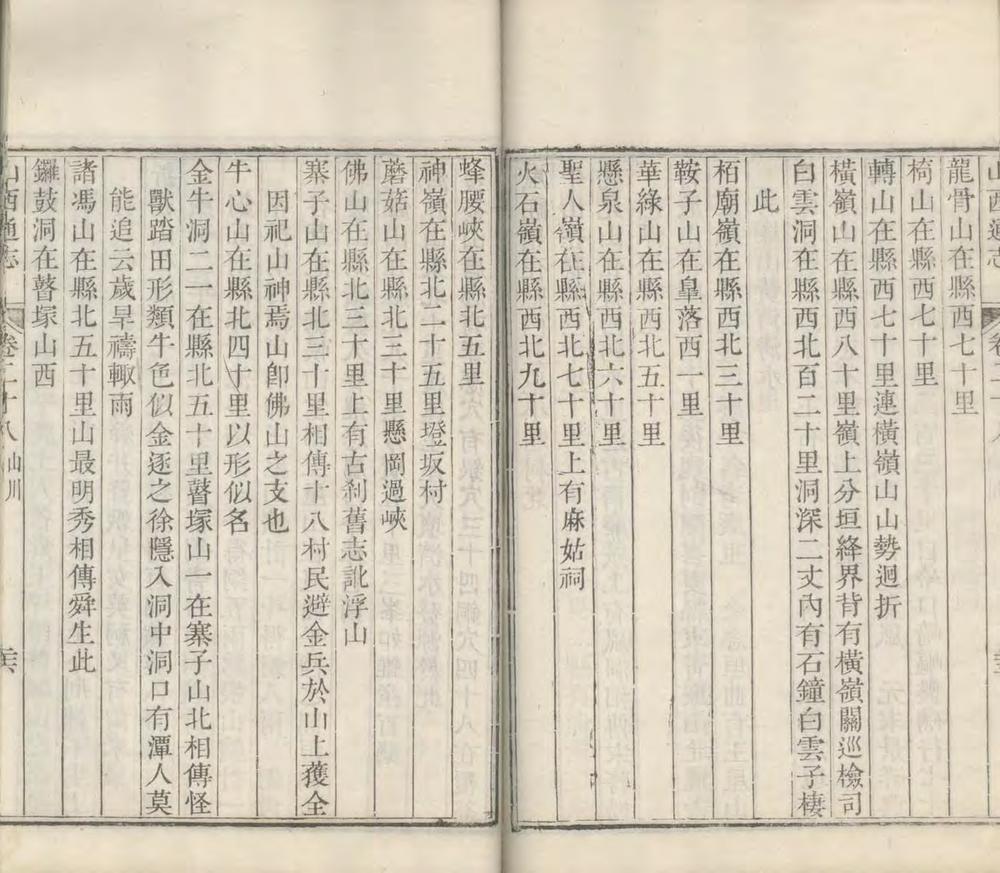 山西通志 卷二十八
龍骨山在縣西七十里
椅山在縣西七十里
轉山在縣西七十里連橫嶺山山勢迴折
橫嶺山在縣西八十里嶺上分垣絳界背有橫嶺關巡檢司
白雲洞在縣西北百二十里洞深二丈內有石鐘白雲子棲
此
栢廟嶺在縣西北三十里
鞍子山在臯落西一里
華綠山在縣西北五十里
懸泉山在縣西北六十里
聖人嶺在縣西北七十里上有麻姑祠
火石嶺在縣西北九十里
蜂腰峽在縣北五里
神嶺在縣北二十五里墱坂村
蘑菇山在縣北三十里懸岡過峽
佛山在縣北三十里上有古刹舊志訛浮山
寨子山在縣北三十里相傳十八村民避金兵於山上獲全
因祀山神焉山卽佛山之支也
牛心山在縣北四十里以形似名
金牛洞二一在縣北五十里瞽塚山一在寨子山北相傳怪
獸踏田形類牛色似金逐之徐隱入洞中洞口有潭人莫
能追云歲旱禱輙雨
諸馮山在縣北五十里山最明秀相傳舜生此
鑼鼓洞在瞽塚山西
山西通志 卷二十八 山川